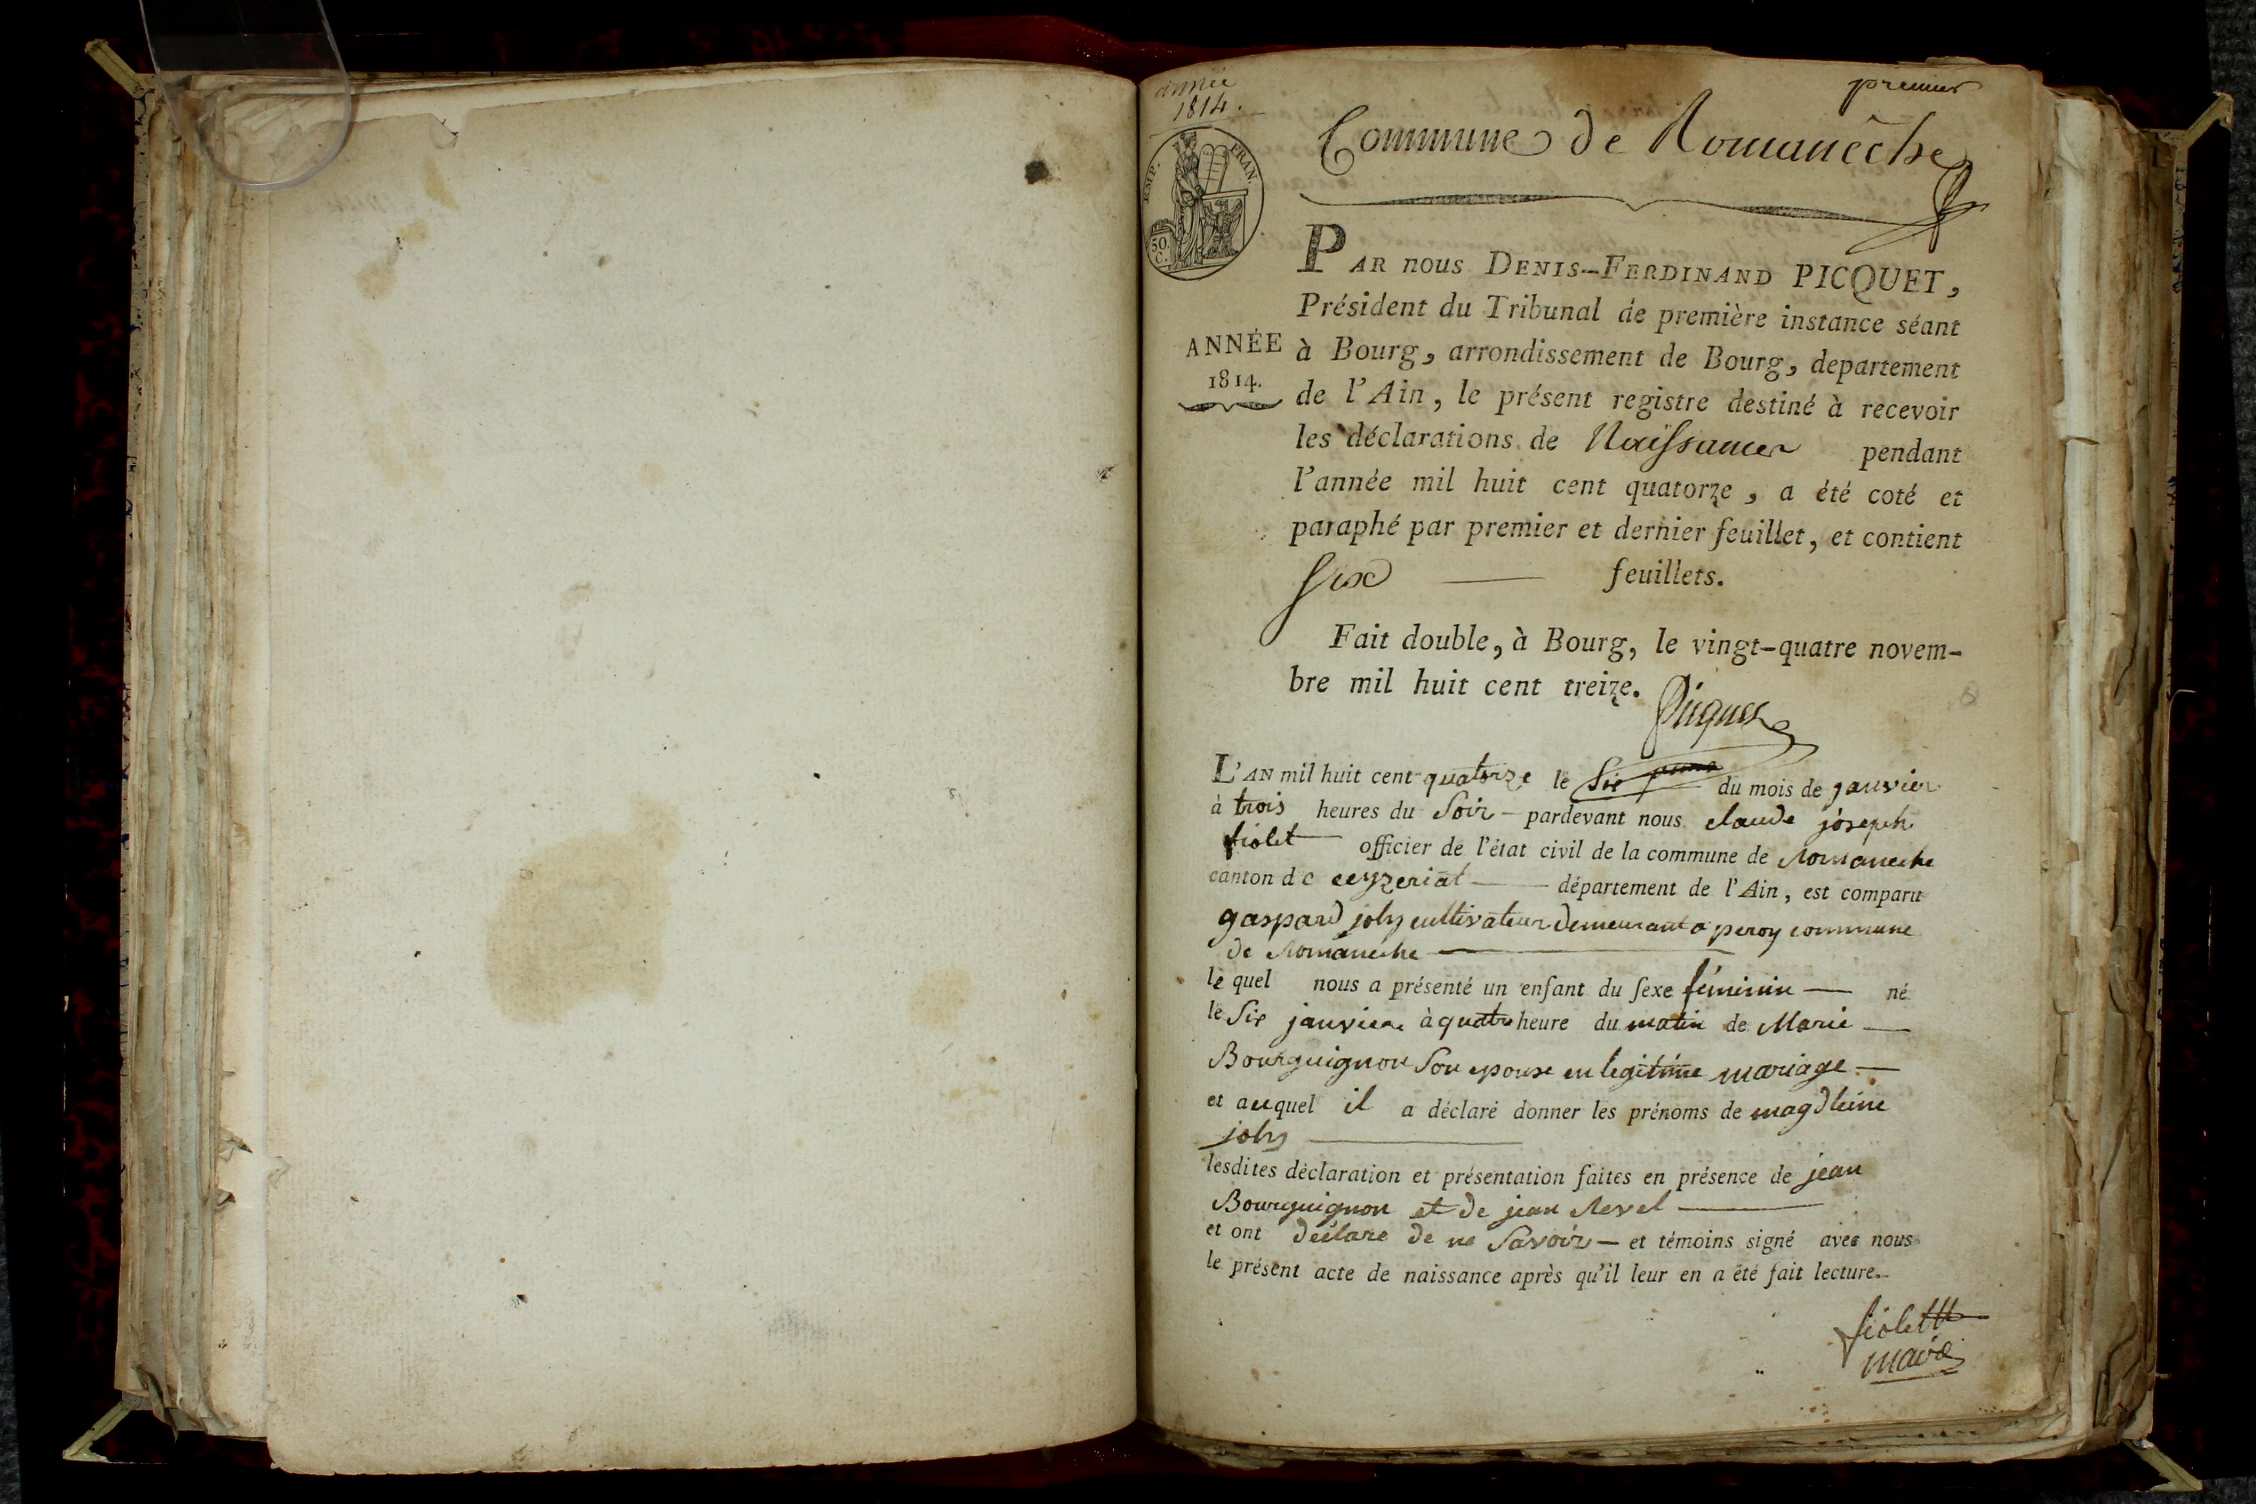 année
1814.
premier
Commune de Romanêche
EMP. FRAN.
50.
C.
PAR nous DENIS-FERDINAND PICQUET,
Président du Tribunal de première instance séant
ANNÉE
1814.
à Bourg, arrondissement de Bourg, departement
de l'Ain, le présent registre destiné à recevoir
les déclarations de Naissances pendant
l'année mil huit cent quatorze, a été coté et
paraphé par premier et dernier feuillet, et contient
Six feuillets.
Fait double, à Bourg, le vingt-quatre novem-
bre mil huit cent treize.
Picquet
L'AN mil huit cent quatorze le Six du mois de janvier
à trois heures du Soir pardevant nous claude joseph
fiolet officier de l'état civil de la commune de Romaneche
canton de ceyzeriat département de l'Ain, est comparu
gaspard joly cultivateur demeurant a peroy commune
de Romaneche
le quel nous a présenté un enfant du sexe féminin né
le Six janvier à quatre heure du matin de Marie
Bourguignon Son epouse en legitime mariage
et auquel il a déclaré donner les prénoms de magdleine
joly
lesdites déclaration et présentation faites en présence de jean
Bourguignon et de jean Revel
et ont déclare de ne Savoir et témoins signé avec nous
le présent acte de naissance après qu'il leur en a été fait lecture.
fiolett